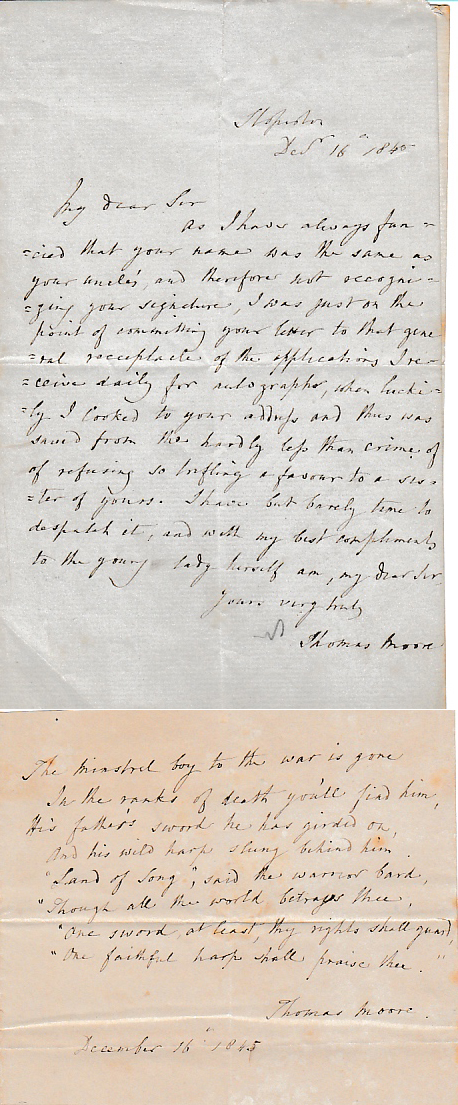 Sloperton
Decr 16th 1845
My dear Sir
As I have always fan=
=cied that your name was the same as
your uncle's, and therefore not recogni=
=zing your signature, I was just on the
point of committing your letter to that gene
=ral receptacle of the applications I re=
=ceive daily for autographs, when lucki=
=ly I looked to your address and thus was
saved from the hardly less than crime of
of refusing so trifling a favour to a sis=
=ter of yours. I have but barely time to
despatch it, and with my best compliments
to the young lady herself am, my dear Sir,
Yours very truly
Thomas Moore
The minstrel boy to the war is gone
In the ranks of death you'll find him,
His father's sword he has girded on,
And his wild harp slung behind him.
"Land of Song", said the warrior bard,
"Though all the world betrays thee,
"One sword, at least, thy rights shall guard,
"One faithful harp shall praise thee."
Thomas Moore.
December 16th 1845